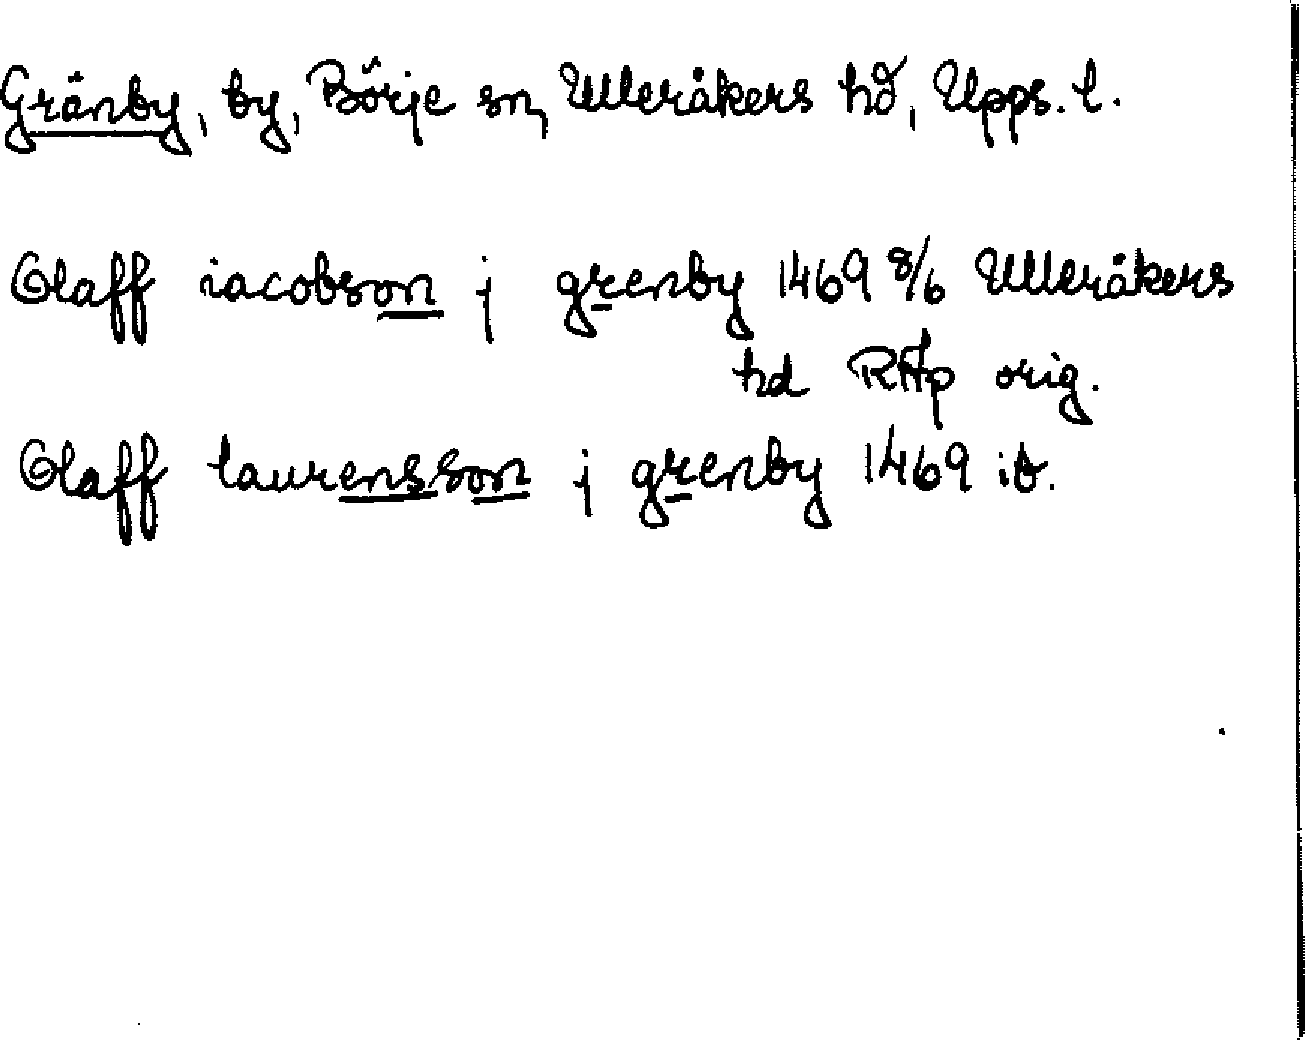 Gränby, by, Börje sn, Ulleråkers hd, Upps. l.
Olaff iacobson j grenby 1469 8/6 Ulleråkers
hd RAp orig.
Olaff laurensson j grenby 1469 ib.